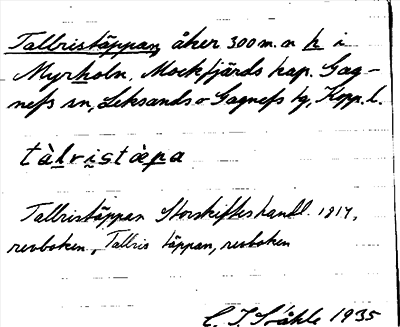 Tallristäppan, åker 300 m. n. h i
Myrholn, Mockfjärds kap. Gag-
nefs sn, Leksands o Gagnefs tg, Kopp. l.
tàlristæpa
Tallristäppan Storskifteshandl. 1817,
revboken, Tallris täppan, revboken
C. I. Ståhle 1935